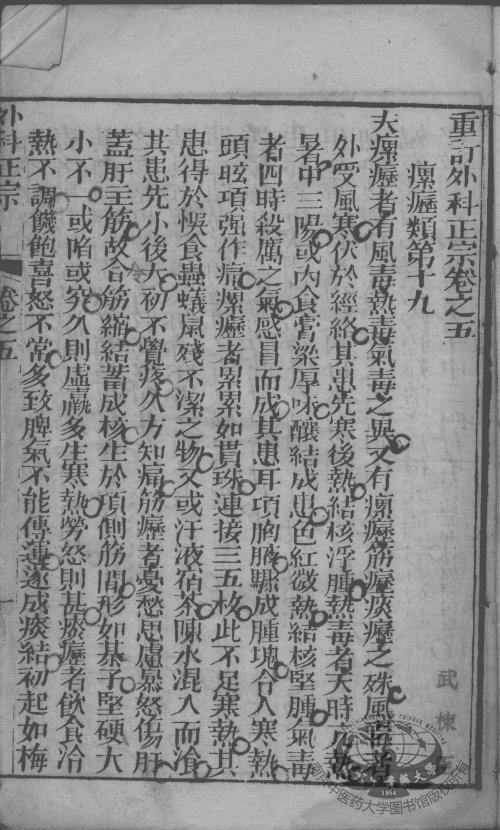 重訂外科正宗卷之五
瘰癧類第十九
夫瘰癧者有風毒熱毒氣毒之異又有瘰癧筋癧痰癧之殊風毒者
外受風寒伏於經絡其患先寒後熱結核浮腫熱毒者天時亢熱
暑中三陽或內食膏粱厚味釀結成患色紅微熱結核堅腫氣毒
者四時殺厲之氣感冒而成其患耳項胸腋驟成腫塊令人寒熱
頭眩項强作痛瘰癧者累累如貫珠連接三五枚此不足寒熱其
患得於悞食蟲蟻鼠殘不潔之物又或汗液宿茶陳水混入而飡
其患先小後大初不覺疼久方知痛筋癧者憂愁思慮暴怒傷肝
蓋肝主筋故令筋縮結蓄成核生於項側筋間形如棊子堅硬大
小不一或陷或突久則虛羸多生寒熱勞怒則甚痰癧者飲食冷
熱不調饑飽喜怒不常多致脾氣不能傳運遂成痰結初起如梅
外科正宗
卷之五
一
武棟
南京中医药大学图书馆版权所有
1954